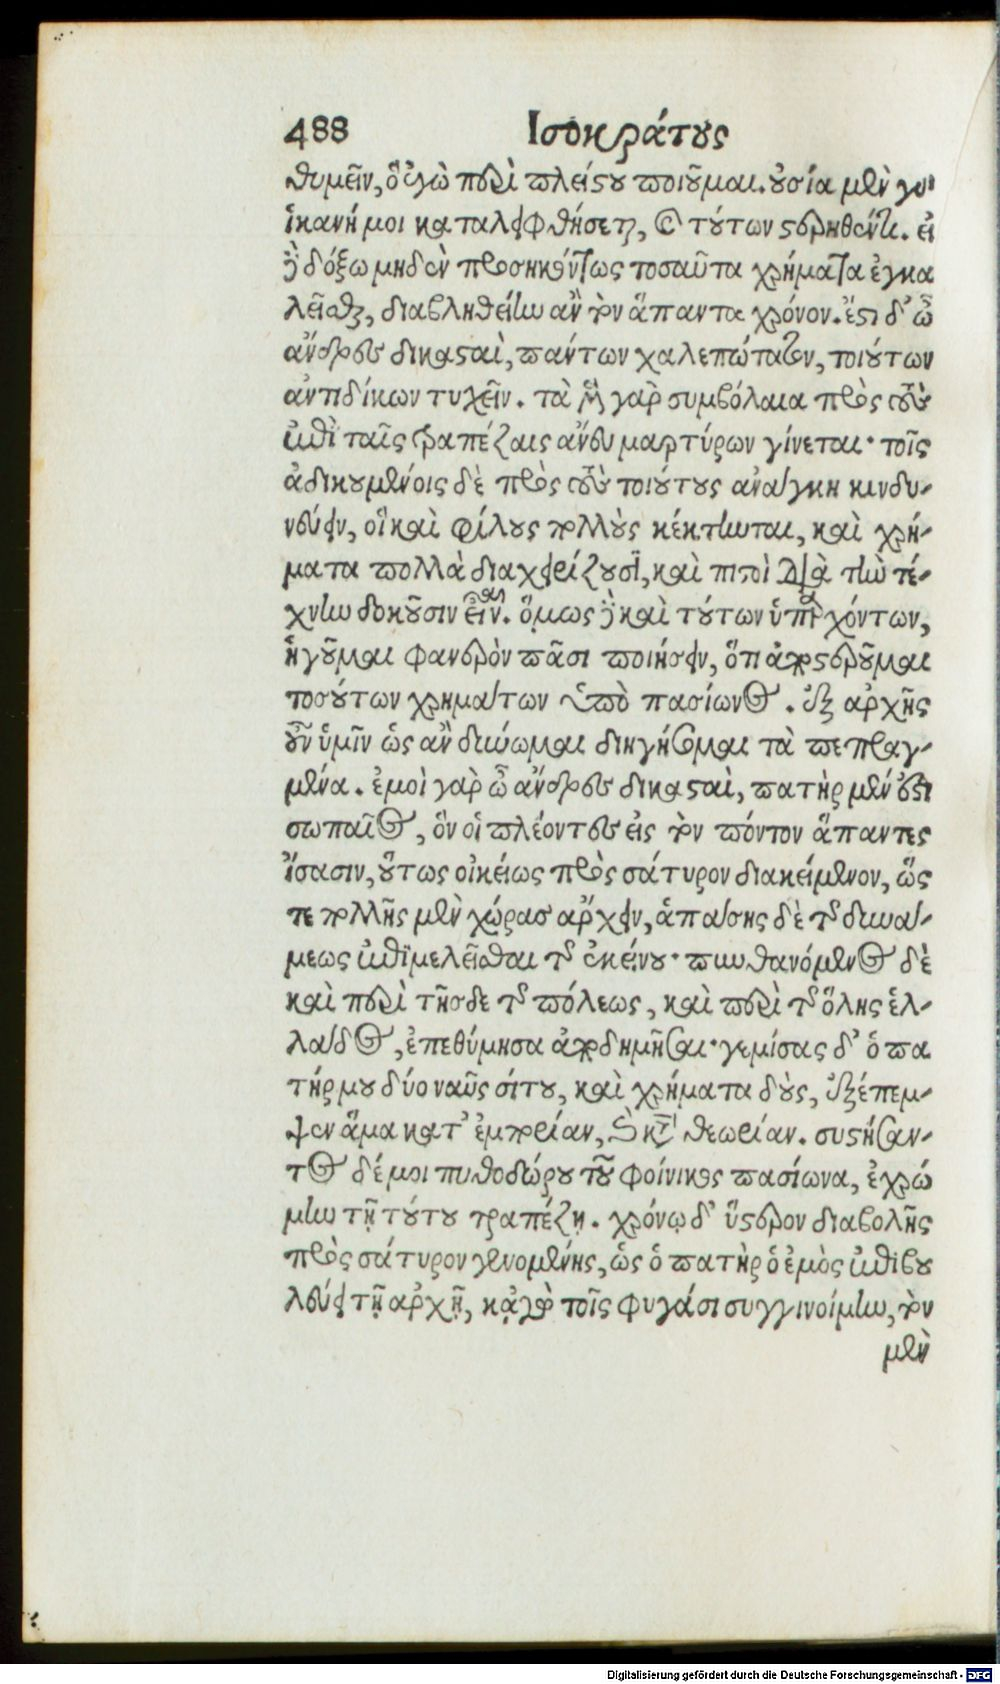 488 Ισοκράτους
θυμεῖν, ὃ ἐγὼ περὶ πλείστου ποιοῦμαι. οὐσία μὲν γὰρ
ἱκανή μοι καταλειφθήσεται, καὶ τούτων στερηθέντι. εἰ
δὲ δόξω μηδὲν προσηκόντως τοσαῦτα χρήματα ἐγκα
λεῖσθαι, διαβληθείην ἂν τὸν ἅπαντα χρόνον. ἔστι δ' ὦ
ἄνδρες δικασταὶ, πάντων χαλεπώτατον, τοιούτων
ἀντιδίκων τυχεῖν. τὰ μὲν γὰρ συμβόλαια πρὸς τοὺς
ἐπὶ ταῖς τραπέζαις ἄνευ μαρτύρων γίνεται· τοῖς
ἀδικουμένοις δὲ πρὸς τοὺς τοιούτους ἀνάγκη κινδυ-
νεύειν, οἳ καὶ φίλους πολλοὺς κέκτηνται, καὶ χρή-
ματα πολλὰ διαχειρίζουσι, καὶ πιστοὶ διὰ τὴν τέ-
χνην δοκοῦσιν εἶναι. ὅμως δὲ καὶ τούτων ὑπαρχόντων,
ἡγοῦμαι φανερὸν πᾶσι ποιήσειν, ὅτι ἀποστεροῦμαι
τοσούτων χρημάτων ὑπὸ πασίωνος. ἐξ ἀρχῆς
οὖν ὑμῖν ὡς ἂν δύνωμαι διηγήσομαι τὰ πεπραγ-
μένα. ἐμοὶ γὰρ ὦ ἄνδρες δικασταὶ, πατὴρ μέν ἐστι
σωπαῖος, ὃν οἱ πλέοντες εἰς τὸν πόντον ἅπαντες
ἴσασιν, οὕτως οἰκείως πρὸς σάτυρον διακείμενον, ὥς
τε πολλῆς μὲν χώρας ἄρχειν, ἁπάσης δὲ τῆς δυνά-
μεως ἐπιμελεῖσθαι τῆς ἐκείνου· πυνθανόμενος δὲ
καὶ περὶ τῆσδε τῆς πόλεως, καὶ περὶ τῆς ὅλης ἑλ-
λάδος, ἐπεθύμησα ἀποδημῆσαι· γεμίσας δ' ὁ πα
τήρ μου δύο ναῦς σίτου, καὶ χρήματα δοὺς, ἐξέπεμ-
ψεν ἅμα κατ' ἐμπορίαν, καὶ κατὰ θεωρίαν. συστήσαν-
τος δέ μοι πυθοδώρου τοῦ φοίνικος πασίωνα, ἐχρώ
μην τῇ τούτου τραπέζῃ. χρόνῳ δ' ὕστερον διαβολῆς
πρὸς σάτυρον γενομένης, ὡς ὁ πατὴρ ὁ ἐμὸς ἐπιβου
λεύει τῇ ἀρχῇ, κἀγὼ τοῖς φυγάσι συγγινοίμην, τὸν
μὲν
Digitalisierung gefördert durch die Deutsche Forschungsgemeinschaft - DFG